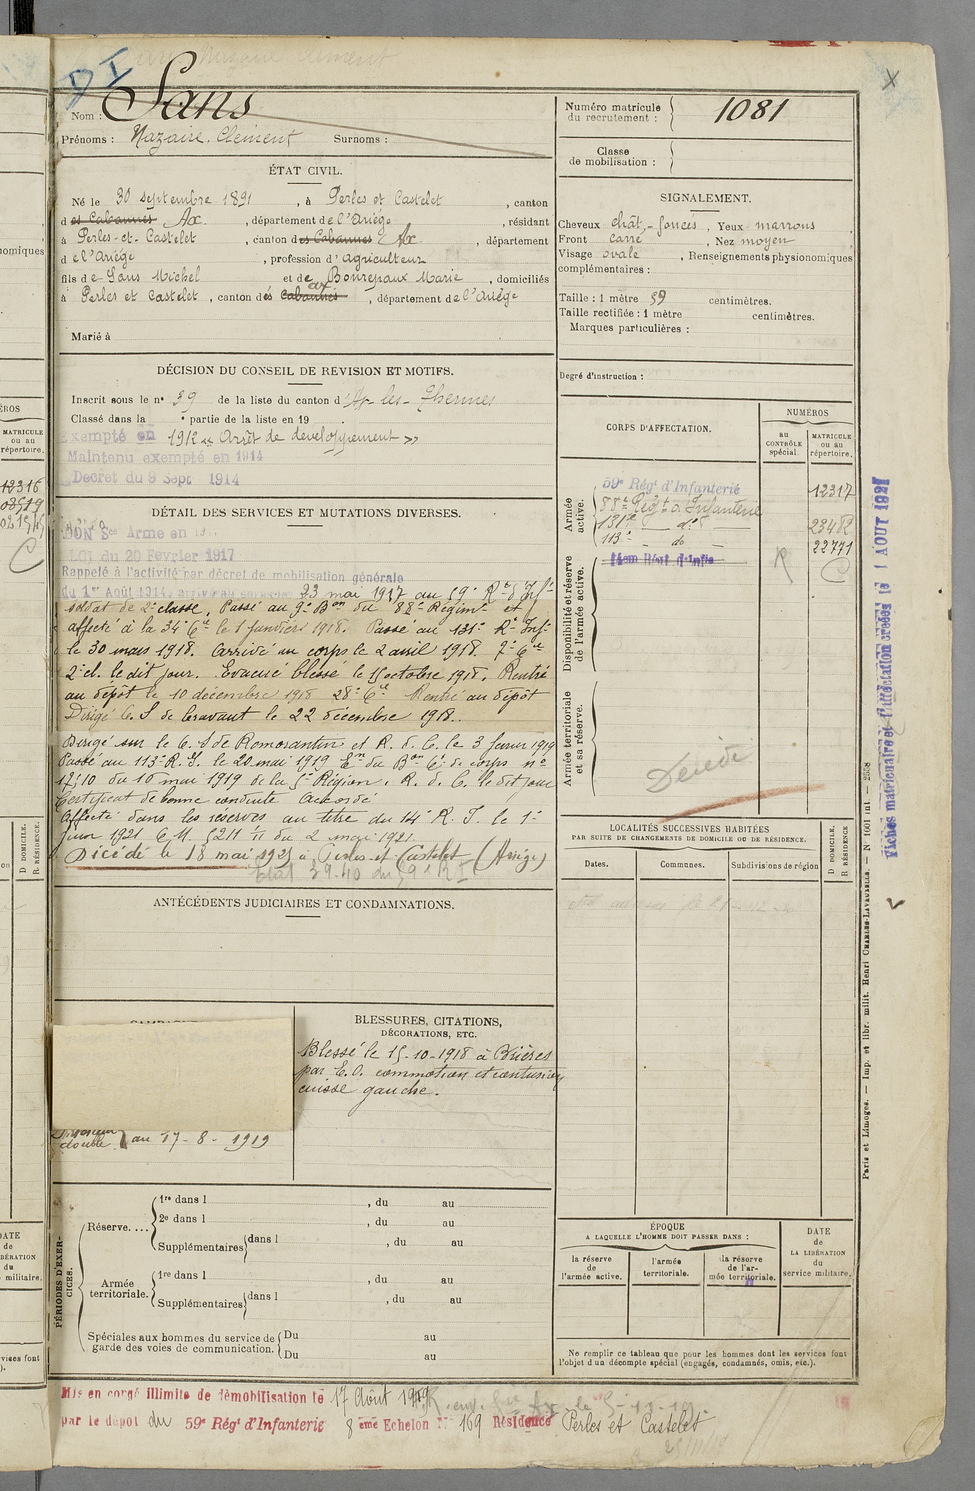 DI
Nom : Sans
Prénoms : Nazaire. Clément Surnoms :
ÉTAT CIVIL.
Né le 30 septembre 1891, à Perles et Castelet, canton
d es Cabannes Ax, département de l'Ariège, résidant
à Perles-et-Castelet, canton des Cabannes Ax, département
d e l'Ariège, profession d' agriculteur
fils de Sans Michel et de Bonrepaux Marie, domiciliés
à Perles et Castelet, canton dés Cabannes ax, département de l'Ariège
Marié à
DÉCISION DU CONSEIL DE RÉVISION ET MOTIFS.
Inscrit sous le n° 39 de la liste du canton d'Ax-les-Thermes
Classé dans la e partie de la liste en 19 .
Exempté en 1912 « Arrêt de développement »
Maintenu exempté en 1914
Decret du 9 Sept 1914
DÉTAIL DES SERVICES ET MUTATIONS DIVERSES.
BON Sce Armé en
LOI du 20 Fevrier 1917
Rappelé à l'activité par décret de mobilisation générale
du 1er Août 1914. 23 mai 1917 au 59e Rt d'Infie
soldat de 2e classe. Passé au 9e Bon du 88e Régimt et
affecté à la 34e Cie le 1 Janvier 1918. Passé au 131e Rt Infie
le 30 mars 1918. Arrivé au corps le 2 avril 1918. 7e Cie
2e cl. le dit jour. Evacué blessé le 15 octobre 1918. Rentré
au dépôt le 10 décembre 1918 28e Cie Rentré au dépôt
Dirigé C. S de Cravant le 22 décembre 1918.
Dirigé sur le C. S de Romorantin et R. d. C. le 3 février 1919
Passé au 113e R. I. le 20 mai 1919 Em du Bon Cé de corps n°
du 10 mai 1919 de la 5e Région. R. d. C. le dit jour
Certificat de bonne conduite Accordé
Affecté dans les réserves au titre du 14e R. I. le 1er
Juin 1921 C M 5211 1/11 du 2 mai 1921.
Décédé le 18 mai 1925 à Perles-et-Castelet (Ariège)
Etat 39.40 du 59e RI
ANTÉCÉDENTS JUDICIAIRES ET CONDAMNATIONS.
BLESSURES, CITATIONS,
DÉCORATIONS, ETC.
Blessé le 15-10-1918 à Brières
par E. O. commotion et contusion
cuisse gauche.
double au 17-8-1919
PÉRIODES D'EXERCICES.
Réserve....
1re dans l , du au
2e dans l , du au
Supplémentaires dans l , du au
Armée territoriale.
1re dans l , du au
Supplémentaires dans l , du au
Spéciales aux hommes du service de garde des voies de communication.
Du au
Du au
Mis en congé illimité de démobilisation le 17 Août 1919
par le dépot du 59e Régt d'Infanterie 8 ème Echelon N° 169 Résidence Perles et Castelet
Numéro matricule
du recrutement : 1081
Classe
de mobilisation :
SIGNALEMENT.
Cheveux chât,- foncés, Yeux marrons
Front carré, Nez moyen
Visage ovale, Renseignements physionomiques
complémentaires :
Taille : 1 mètre 59 centimètres.
Taille rectifiée : 1 mètre centimètres.
Marques particulières :
Degré d'instruction :
CORPS D'AFFECTATION.
NUMÉROS
au
CONTRÔLE
spécial.
MATRICULE
ou au
répertoire.
Armée active.
59e Régt d'Infanterie 12317
88e Régt d'Infanterie
131e — do — 23482
113e — do — 22771
Disponibilité et réserve de l'armée active.
14em Régt d'Infie R C
Armée territoriale et sa réserve.
Décédé
LOCALITÉS SUCCESSIVES HABITÉES
PAR SUITE DE CHANGEMENTS DE DOMICILE OU DE RÉSIDENCE.
Dates. Communes. Subdivisions de région
D DOMICILE.
R RÉSIDENCE
ÉPOQUE
A LAQUELLE L'HOMME DOIT PASSER DANS :
la réserve
de
l'armée active.
l'armée
territoriale.
la réserve
de l'ar-
mée territoriale.
DATE
de
LA LIBÉRATION
du
service militaire.
Ne remplir ce tableau que pour les hommes dont les services font
l'objet d'un décompte spécial (engagés, condamnés, omis, etc.).
Fiches matriculaire et d'affectation créées le 1 AOUT 1921
Paris et Limoges. — Imp. et libr. milit. Henri CHARLES-LAVAUZELLE. — N° 1601 int. — 2558